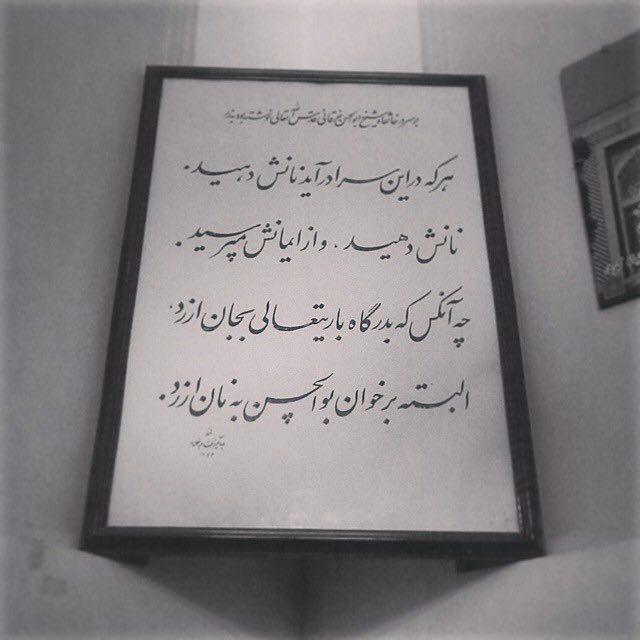 بر سر در خانقاه شیخ ابوالحسن خرقانی قدس الله تعالی نوشته بود
هر که در این سرا درآید نانش دهید.
نانش دهید. و از ایمانش مپرسید.
چه آنکس که بدرگاه باریتعالی بجان ارزد.
البته بر خوان بوالحسن به نان ارزد.